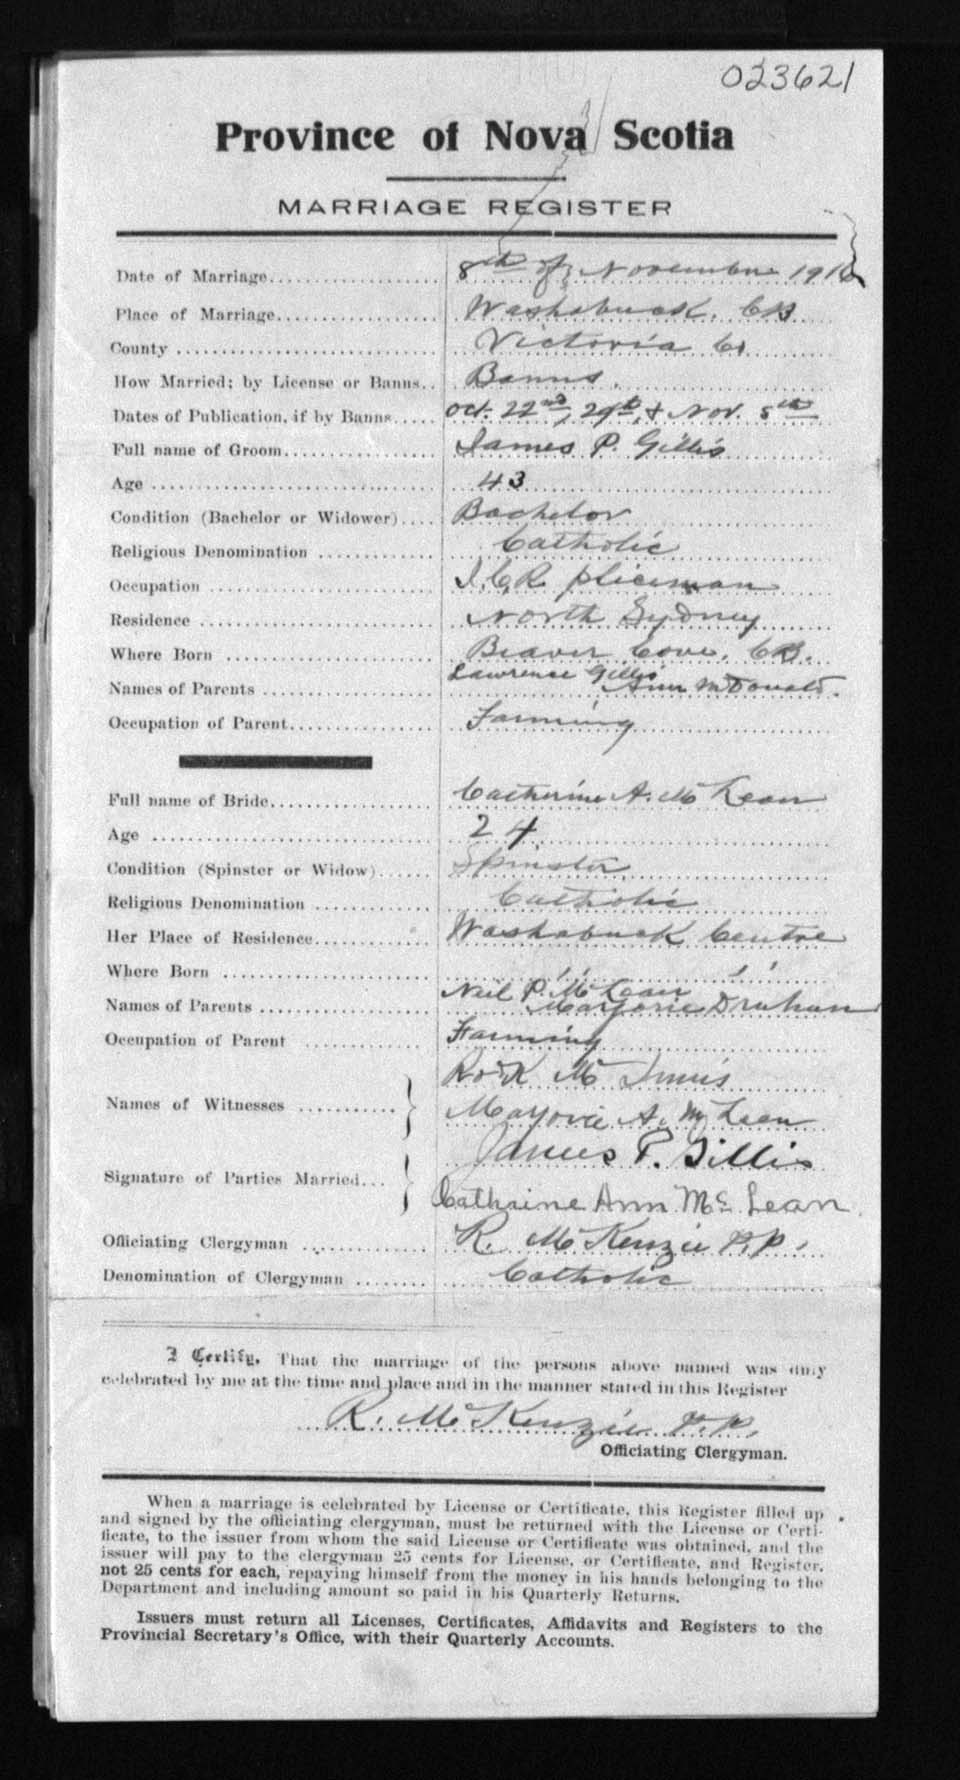 023621
Province of Nova Scotia
MARRIAGE REGISTER
Date of Marriage 8th of November 1916
Place of Marriage Washabuck. CB
County Victoria Co
How Married; by License or Banns Banns.
Dates of Publication, if by Banns Oct. 22nd, 29th, & Nov. 5th
Full name of Groom James P. Gillis
Age 43
Condition (Bachelor or Widower) Bachelor
Religious Denomination Catholic
Occupation I.C.R. pliceman
Residence North Sydney
Where Born Beaver Cove. CB.
Names of Parents Lawrence Gillis Ann McDonald.
Occupation of Parent Farming
Full name of Bride Catherine A. McLean
Age 24
Condition (Spinster or Widow) Spinster
Religious Denomination Catholic
Her Place of Residence Washabuck Centre
Where Born " "
Names of Parents Neil P. McLean Marjorie Druhan
Occupation of Parent Farming
Names of Witnesses Rod'k McInnis
Marjorie A. McLean
Signature of Parties Married James P. Gillis
Cathrine Ann McLean
Officiating Clergyman R. McKenzie P.P.
Denomination of Clergyman Catholic
I Certify, That the marriage of the persons above named was duly
celebrated by me at the time and place and in the manner stated in this Register
R. McKenzie P.P.
Officiating Clergyman.
When a marriage is celebrated by License or Certificate, this Register filled up
and signed by the officiating clergyman, must be returned with the License or Certi-
ficate, to the issuer from whom the said License or Certificate was obtained, and the
issuer will pay to the clergyman 25 cents for License, or Certificate, and Register,
not 25 cents for each, repaying himself from the money in his hands belonging to the
Department and including amount so paid in his Quarterly Returns.
Issuers must return all Licenses, Certificates, Affidavits and Registers to the
Provincial Secretary's Office, with their Quarterly Accounts.